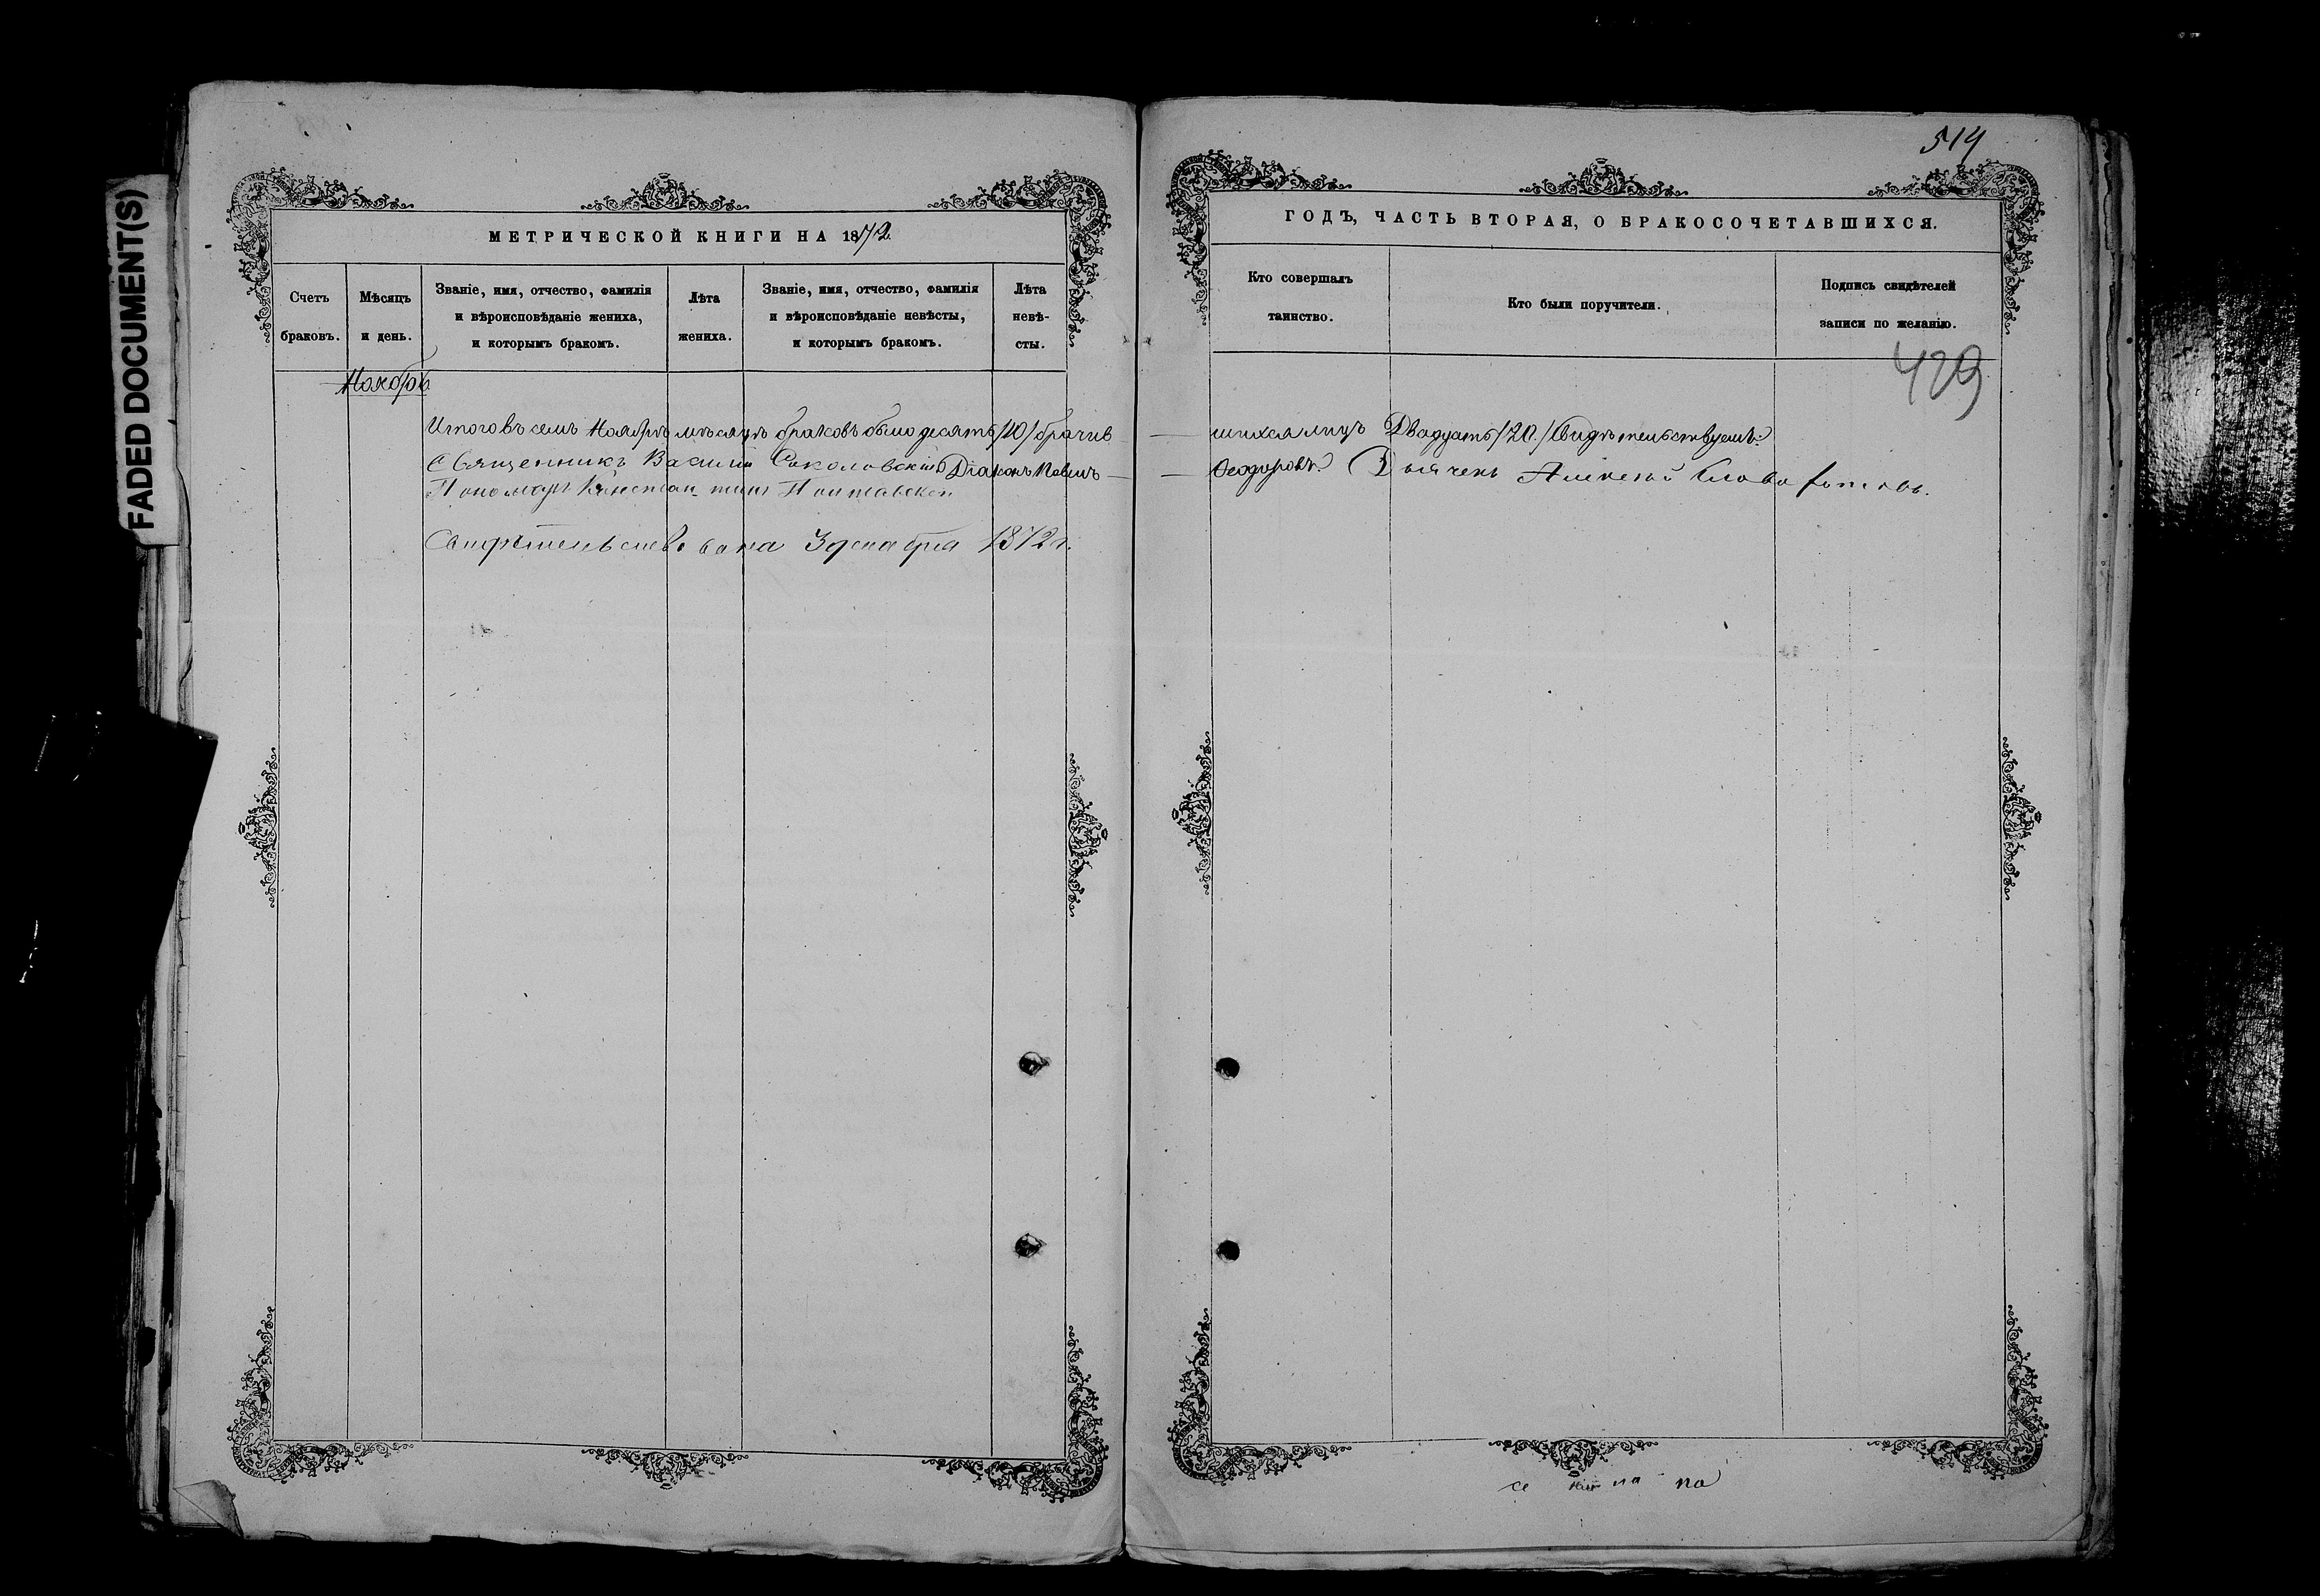 FADED DOCUMENT(S)
МЕТРИЧЕСКОЙ КНИГИ НА 1872
Счетъ
браковъ.
Мѣсяцъ
и день.
Званіе, имя, отчество, фамилія
и вѣроисповѣданіе жениха,
и которымъ бракомъ.
Лѣта
жениха.
Званіе, имя, отчество, фамилія
и вѣроисповѣданіе невѣсты,
и которымъ бракомъ.
Лѣта
невѣ-
сты.
Ноябрь
Итого въ семъ Ноябрѣ мѣсяцѣ браковъ было десять /10/ брачив
Священникъ Василій Соколовскій Діаконъ Павелъ
Пономарь Константинъ Полтавскій
Свидѣтельствована 3 декабря 1872 г.
514
ГОДЪ, ЧАСТЬ ВТОРАЯ, О БРАКОСОЧЕТАВШИХСЯ.
Кто совершалъ
таинство.
Кто были поручители.
Подпись свидѣтелей
записи по желанію.
шихся лицъ Двадцать /20./ Свидѣтельствуемъ:
Ѳеодоровъ. Дьячекъ Алексѣй
по